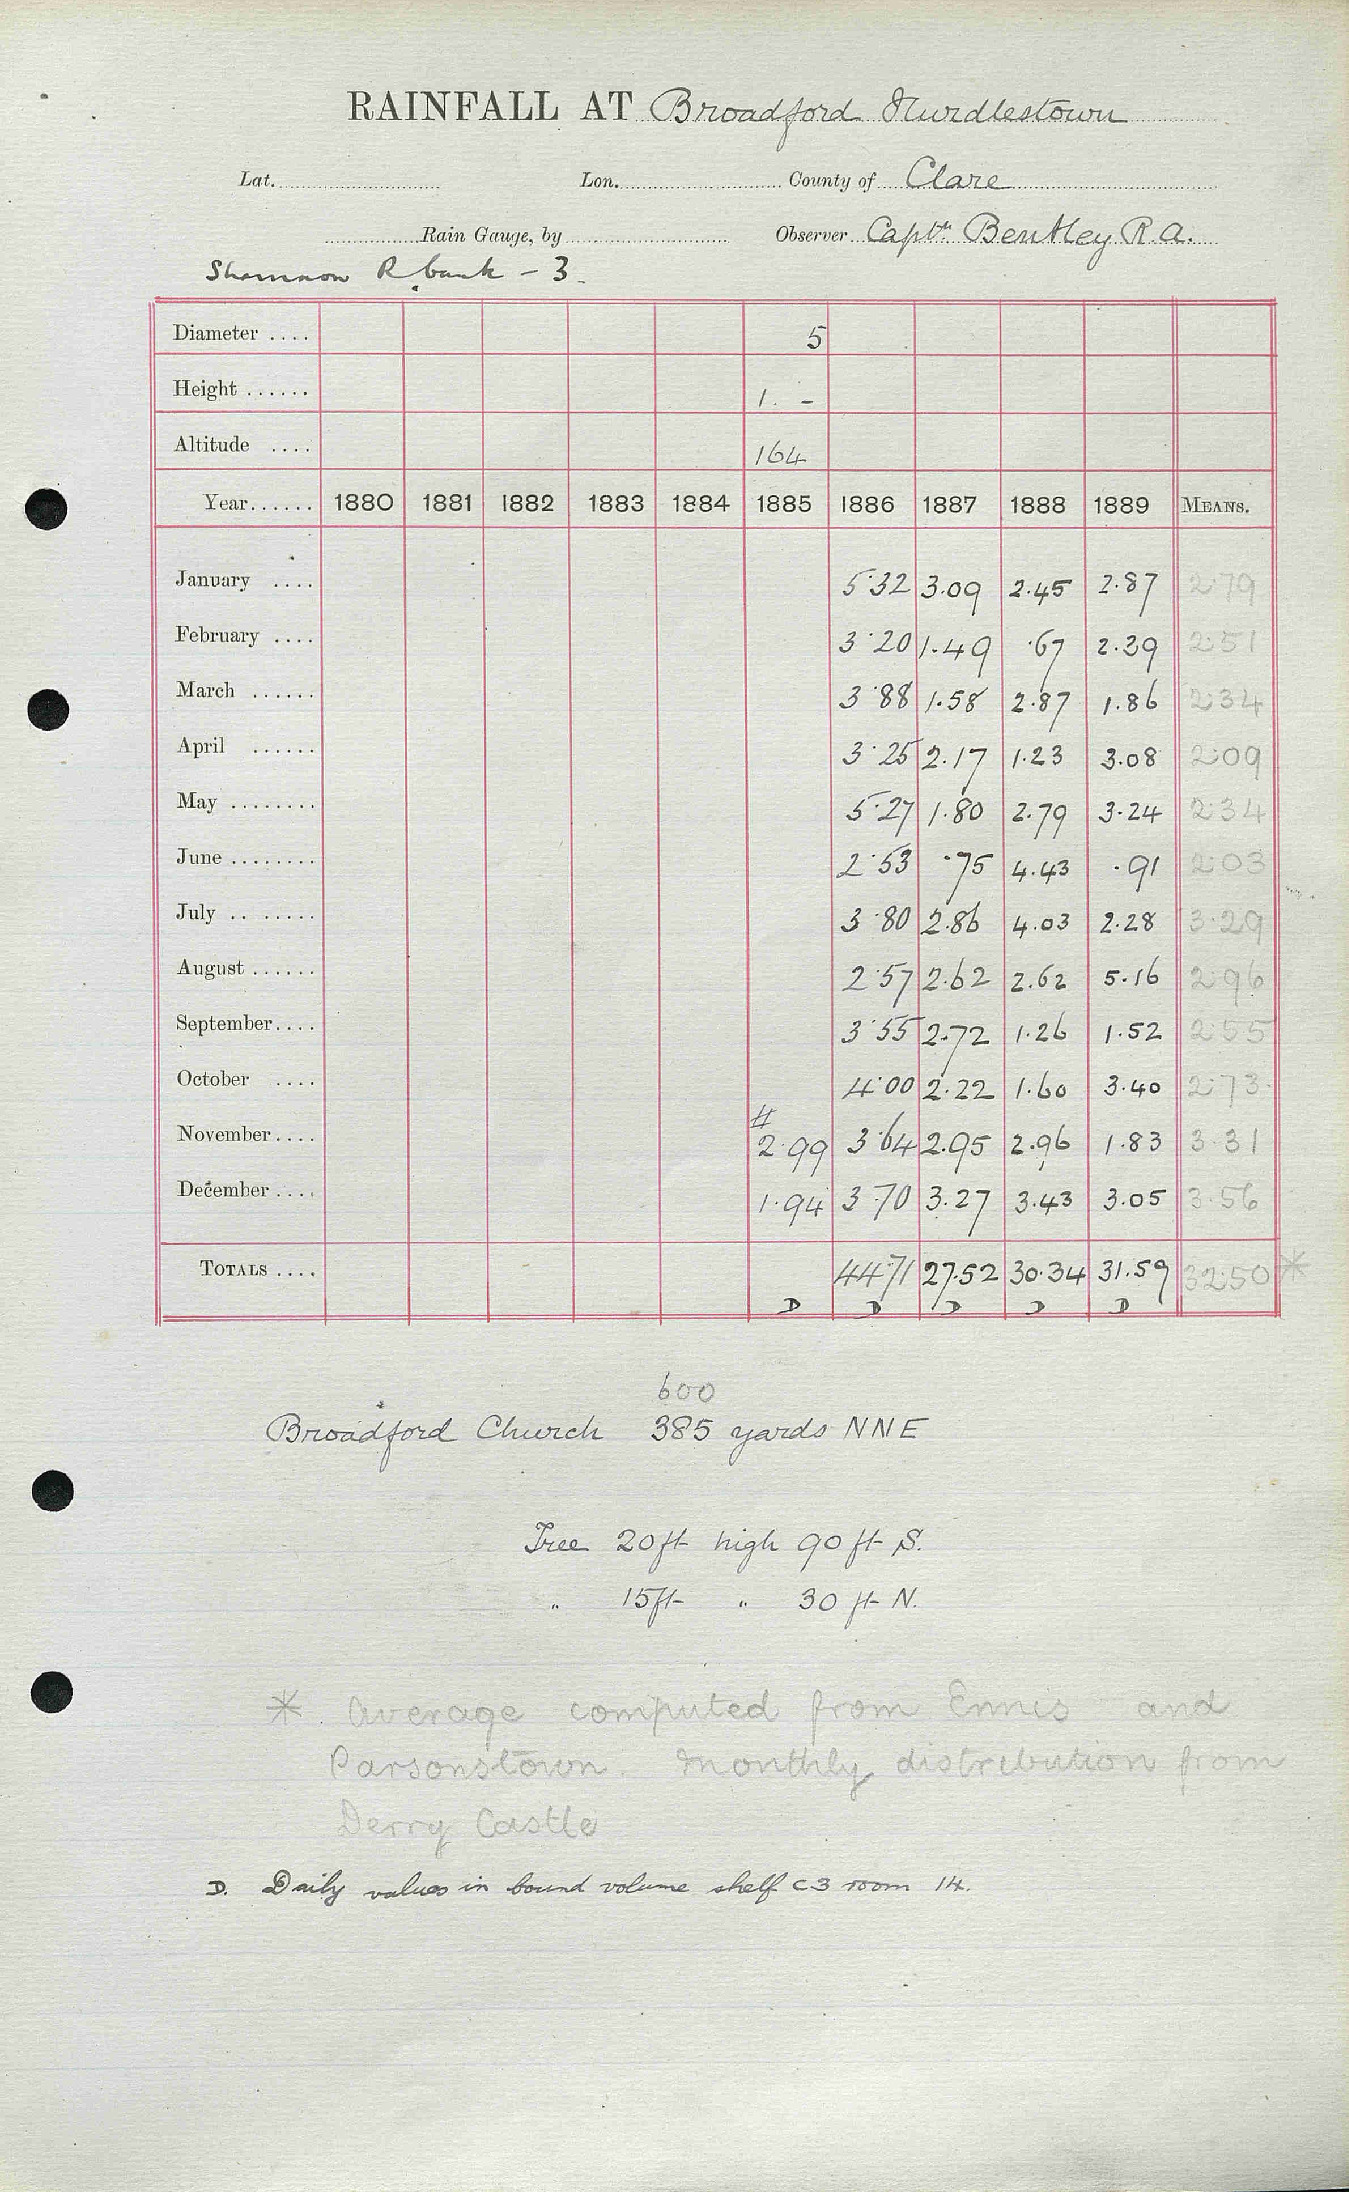 RAINFALL AT Broadford Hurdlestown
Lat. Lon. County of Clare
Rain Gauge, by Observer Captn. Bentley R.A.
Shannon R bank - 3.
Diameter .... 5
Height ...... 1. -
Altitude .... 164
Year...... 1880 1881 1882 1883 1884 1885 1886 1887 1888 1889 MEANS.
January .... 5.32 3.09 2.45 2.87 2.79
February .... 3.20 1.49 .67 2.39 2.51
March ...... 3.88 1.58 2.87 1.86 2.34
April ...... 3.25 2.17 1.23 3.08 2.09
May ........ 5.27 1.80 2.79 3.24 2.34
June ........ 2.53 .75 4.43 .91 2.03
July .. ..... 3.80 2.86 4.03 2.28 3.29
August ...... 2.57 2.62 2.62 5.16 2.96
September.... 3.55 2.72 1.26 1.52 2.55
October .... 4.00 2.22 1.60 3.40 2.73
#
November.... 2.99 3.64 2.95 2.96 1.83 3.31
December .... 1.94 3.70 3.27 3.43 3.05 3.56
TOTALS .... 44.71 27.52 30.34 31.59 32.50 *
D D D D D
600
Broadford Church 385 yards NNE
Tree 20ft high 90 ft S.
" 15ft " 30 ft N.
* Average computed from Ennis and
Parsonstown. Monthly distribution from
Derry Castle
D. Daily values in bound volume shelf C3 room 14.